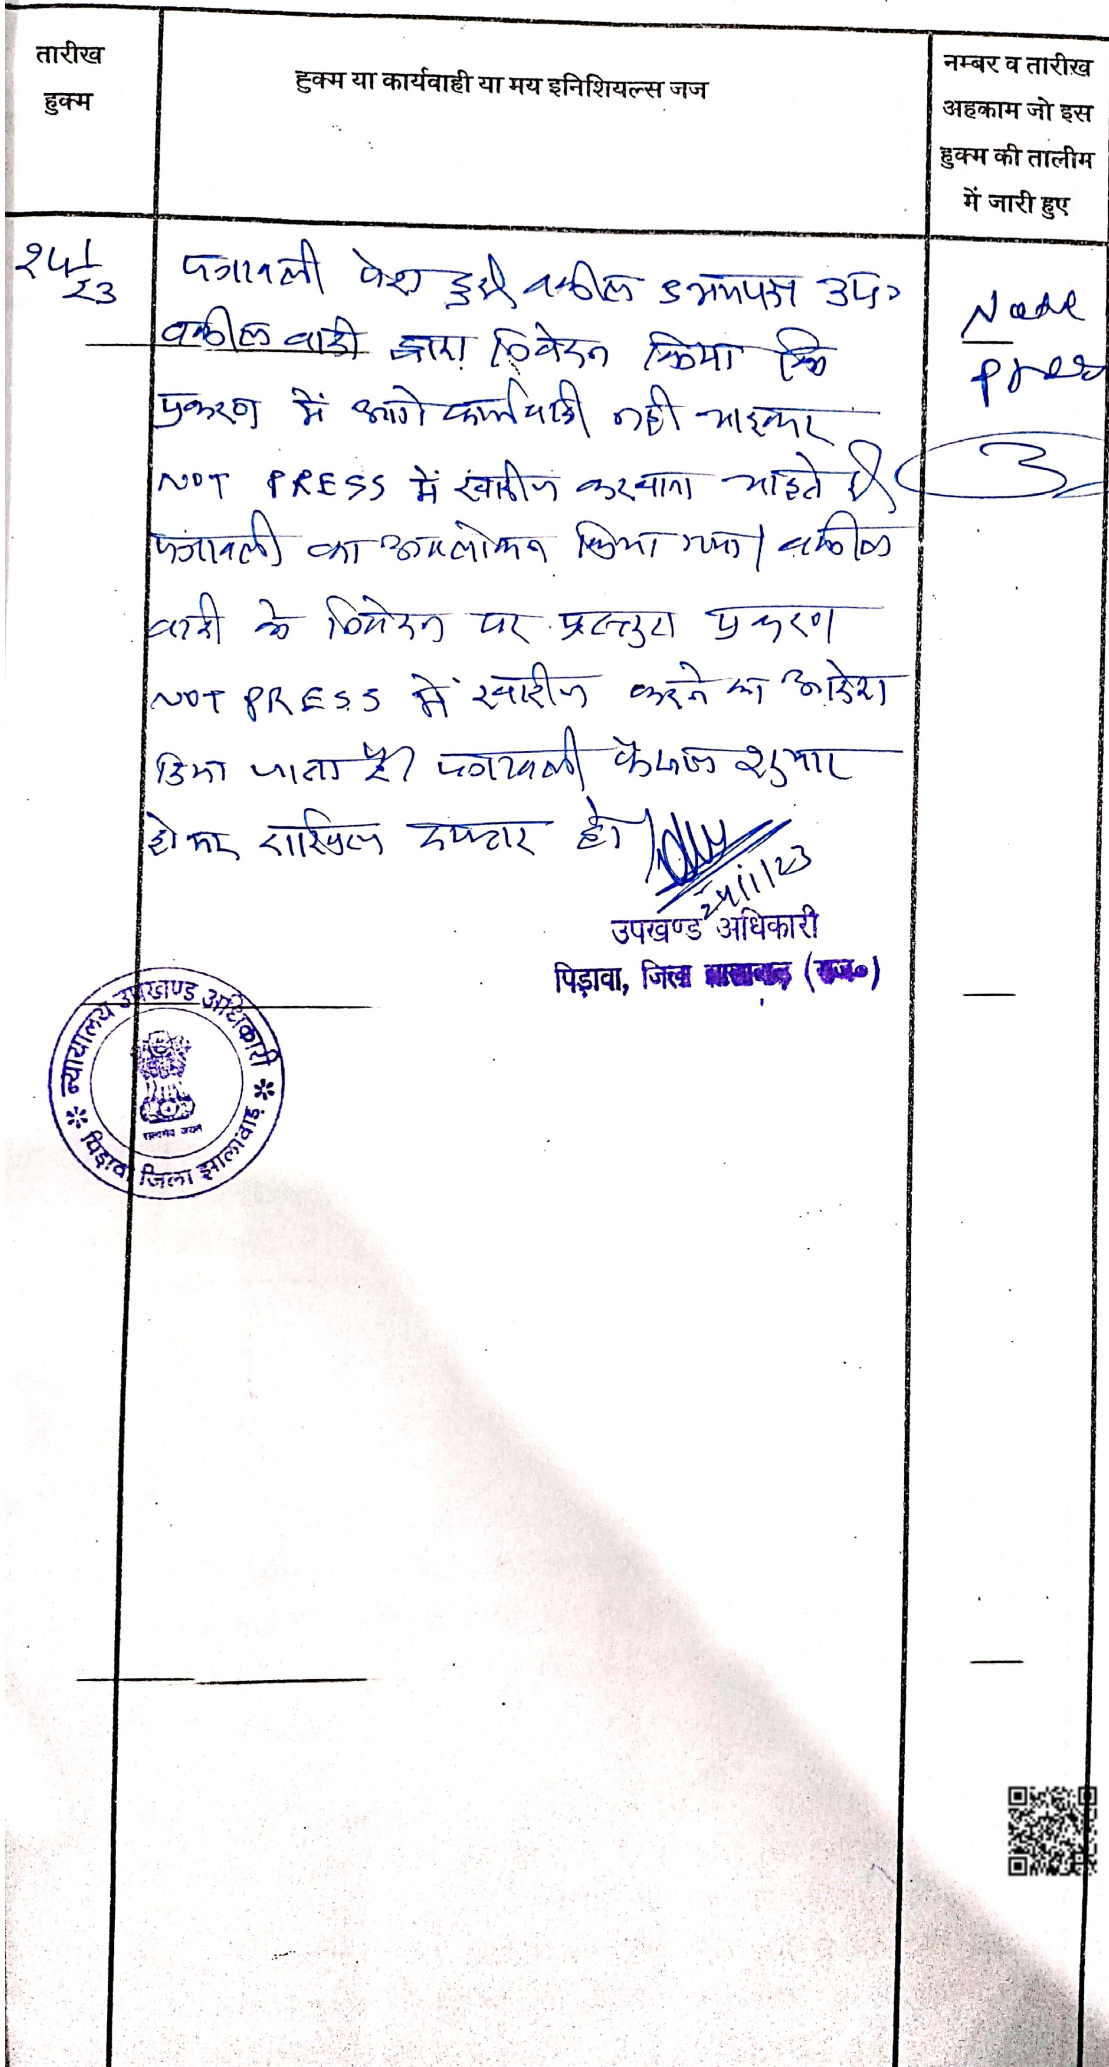 तारीख
हुक्म
हुक्म या कार्यवाही या मय इनिशियल्स जज
नम्बर व तारीख
अहकाम जो इस
हुक्म की तालीम
में जारी हुए
पत्रावली पेश हुई वकील उभयपक्ष उप०
वकील वादी द्वारा निवेदन किया कि
प्रकरण में आगे कार्यवाही नही चाहकर
NOT PRESS में खारीज करवाना चाहते है
पत्रावली का अवलोकन किया गया। वकील
वादी के निवेदन पर प्रस्तुत प्रकरण
NOT PRESS में खारीज करने का आदेश
दिया जाता है। पत्रावली फैसल शुमार
होकर दाखिल दफ्तर हो
24/1/23
उपखण्ड अधिकारी
पिड़ावा, जिला (राज०)
न्यायालय उपखण्ड अधिकारी
पिड़ावा जिला झालावाड़
सत्यमेव जयते